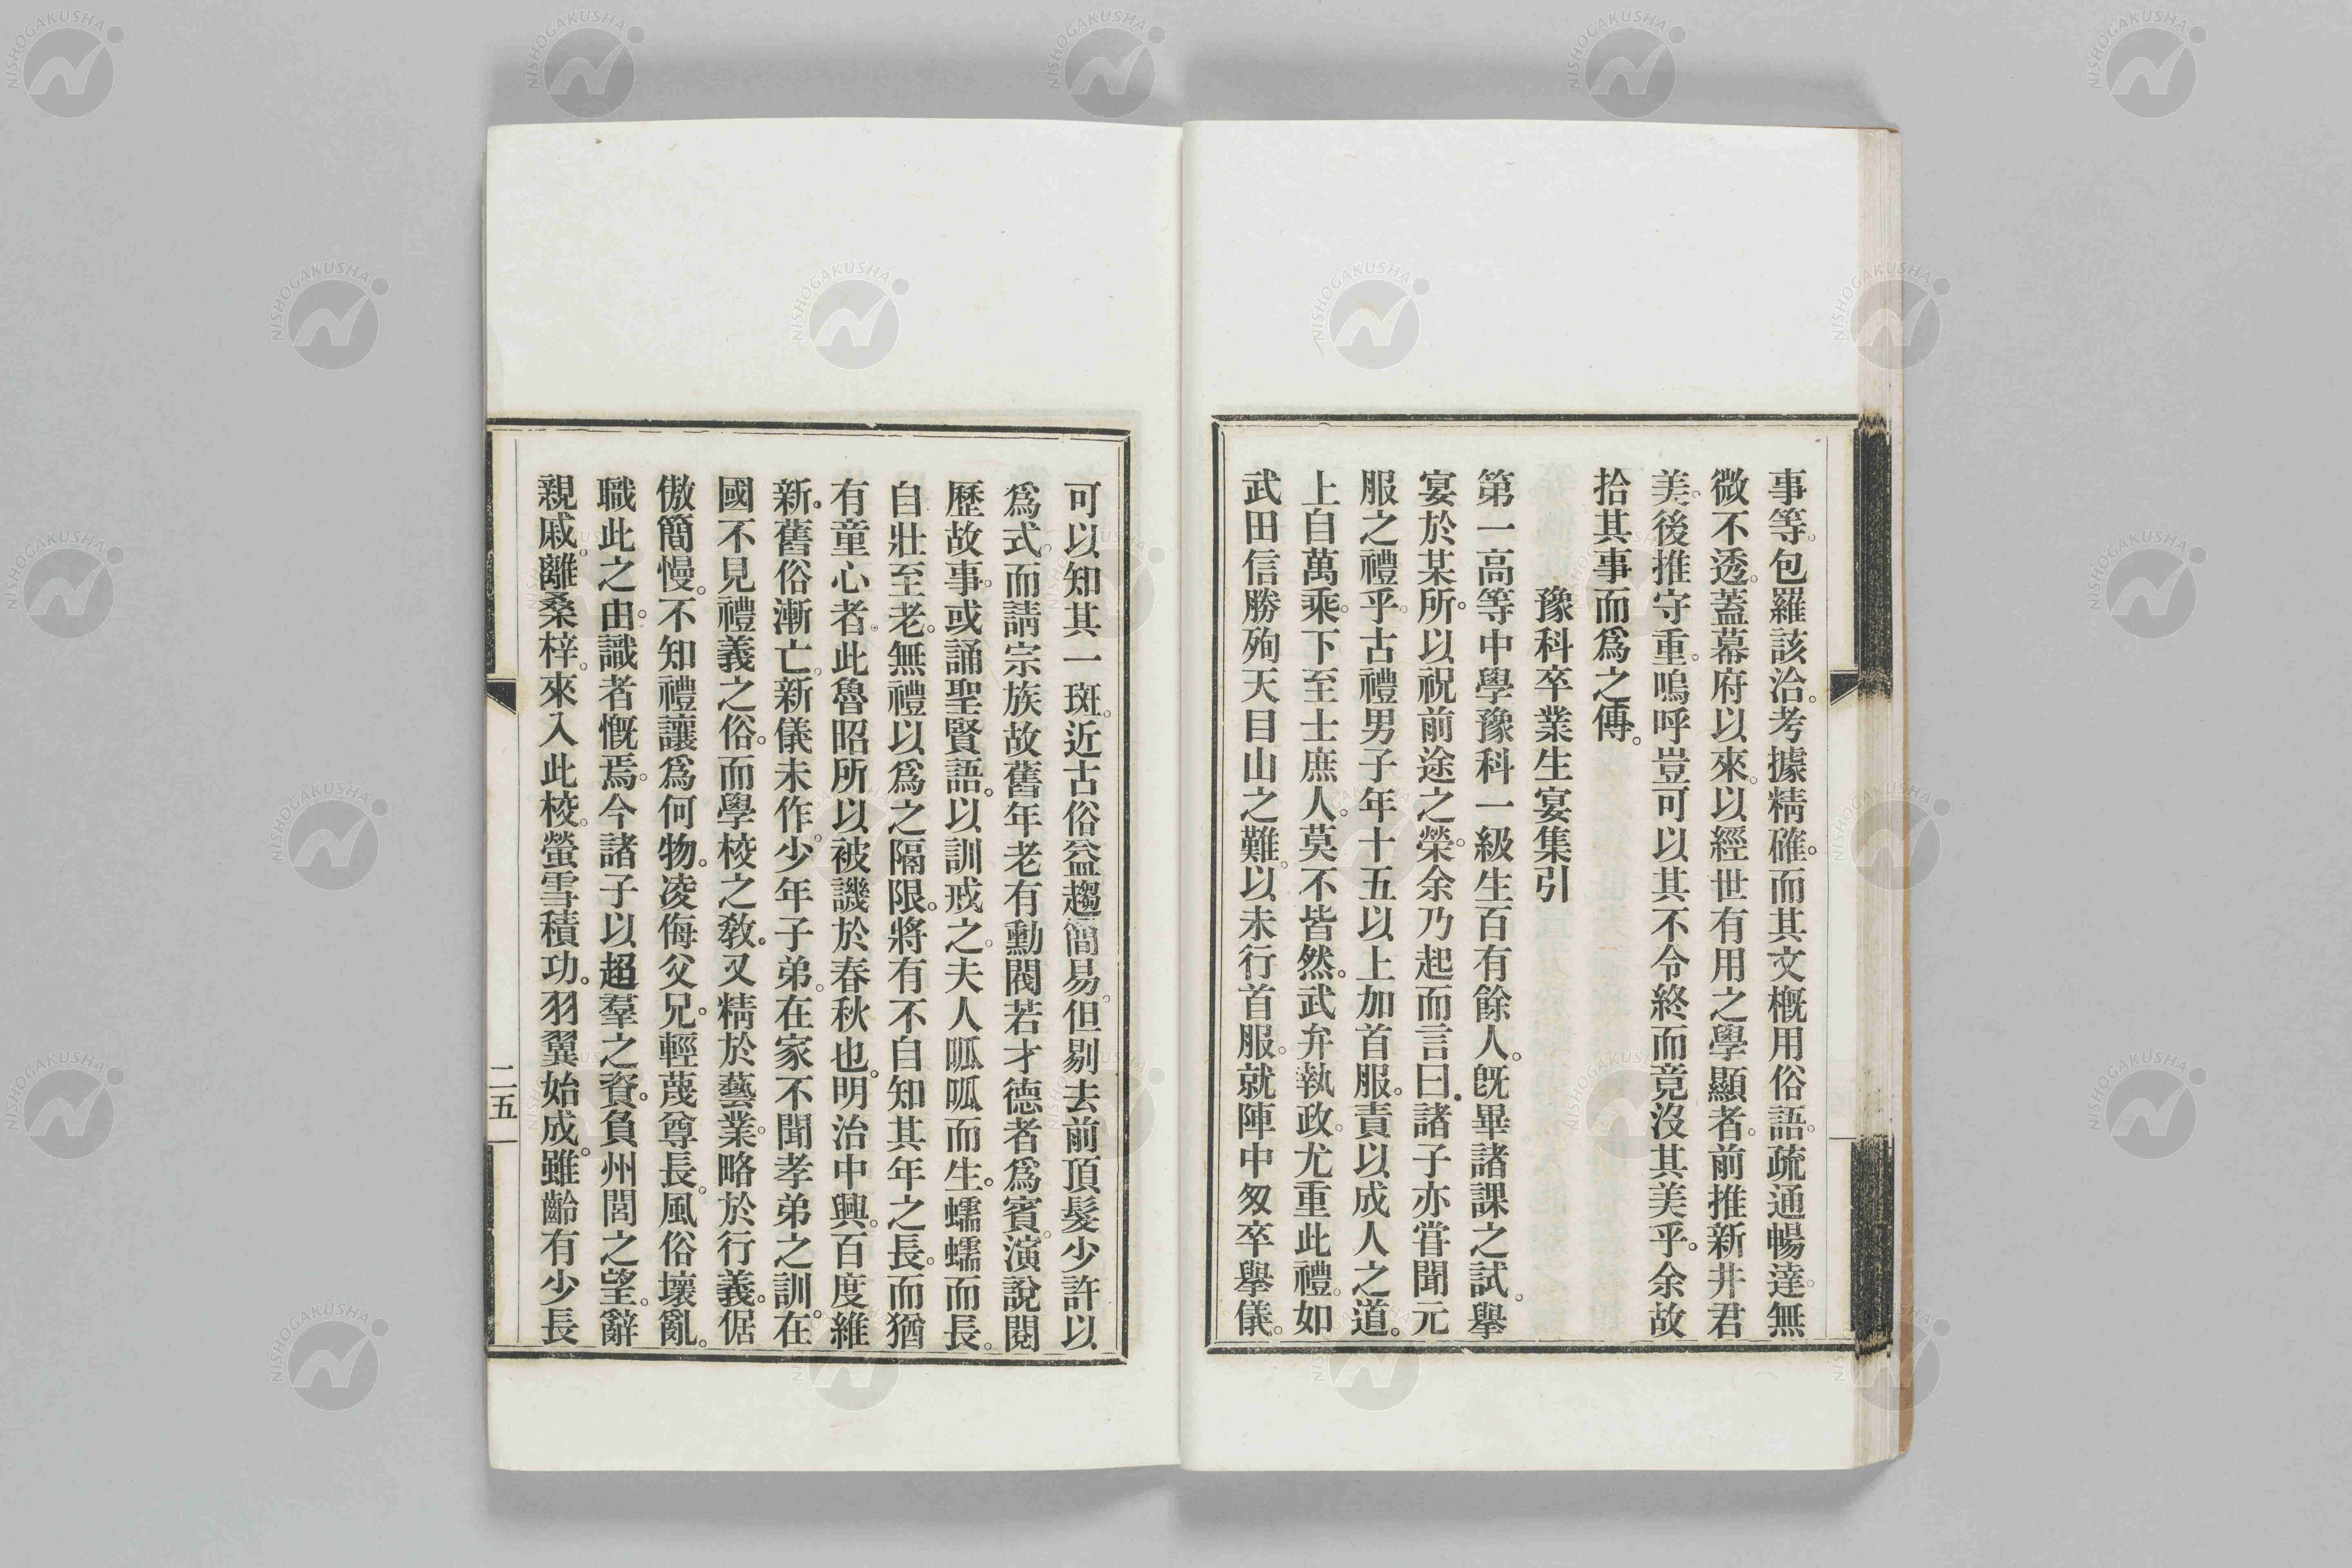 事等。包羅該洽。考據精確。而其文概用俗語。疏通暢達。無
微不透。蓋幕府以來。以經世有用之學顯者。前推新井君
美。後推守重。嗚呼豈可以其不令終而竟沒其美乎。余故
拾其事而爲之傳。
豫科卒業生宴集引
第一高等中學豫科一級生百有餘人。既畢諸課之試。擧
宴於某所。以祝前途之榮。余乃起而言曰。諸子亦嘗聞元
服之禮乎。古禮男子年十五以上加首服。責以成人之道。
上自萬乘。下至士庶人。莫不皆然。武弁執政。尤重此禮。如
武田信勝殉天目山之難。以未行首服。就陣中匆卒擧儀。
可以知其一斑。近古俗益趨簡易。但剔去前頂髮少許以
爲式。而請宗族故舊年老有勳閥若才德者爲賓。演說閱
歷故事。或誦聖賢語。以訓戒之。夫人呱呱而生。蠕蠕而長。
自壯至老。無禮以爲之隔限。將有不自知其年之長。而猶
有童心者。此魯昭所以被譏於春秋也。明治中興。百度維
新。舊俗漸亡。新儀未作。少年子弟。在家不聞孝弟之訓。在
國不見禮義之俗。而學校之敎。又精於藝業。略於行義。倨
傲簡慢。不知禮讓爲何物。凌侮父兄。輕蔑尊長。風俗壞亂。
職此之由。識者慨焉。今諸子以超羣之資。負州閭之望。辭
親戚。離桑梓。來入此校。螢雪積功。羽翼始成。雖齡有少長
二五
NISHOGAKUSHA